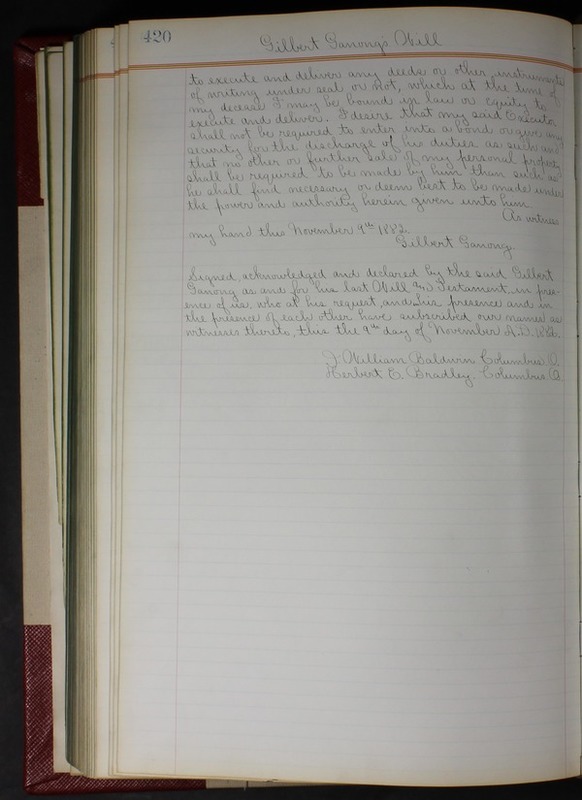 420
Gilbert Ganong's Will
to execute and deliver any deeds or other instruments
of writing under seal or not, which at the time of
my decease I may be bound in law or equity to
execute and deliver. I desire that my said Executor
shall not be required to enter into a bond or give any
security for the discharge of his duties as such and
that no other or further sale of my personal property
shall be required to be made by him than such as
he shall find necessary or deem best to be made under
the power and authority herein given unto him.
As witness
my hand this November 9th 1882.
Gilbert Ganong.
Signed, acknowledged and declared by the said Gilbert
Ganong as and for his last Will and Testament in pres-
ence of us, who at his request, and in his presence and in
the presence of each other have subscribed our names as
witnesses thereto, this the 9th day of November A.D. 1882.
J. William Baldwin Columbus O.
Herbert E. Bradley. Columbus O